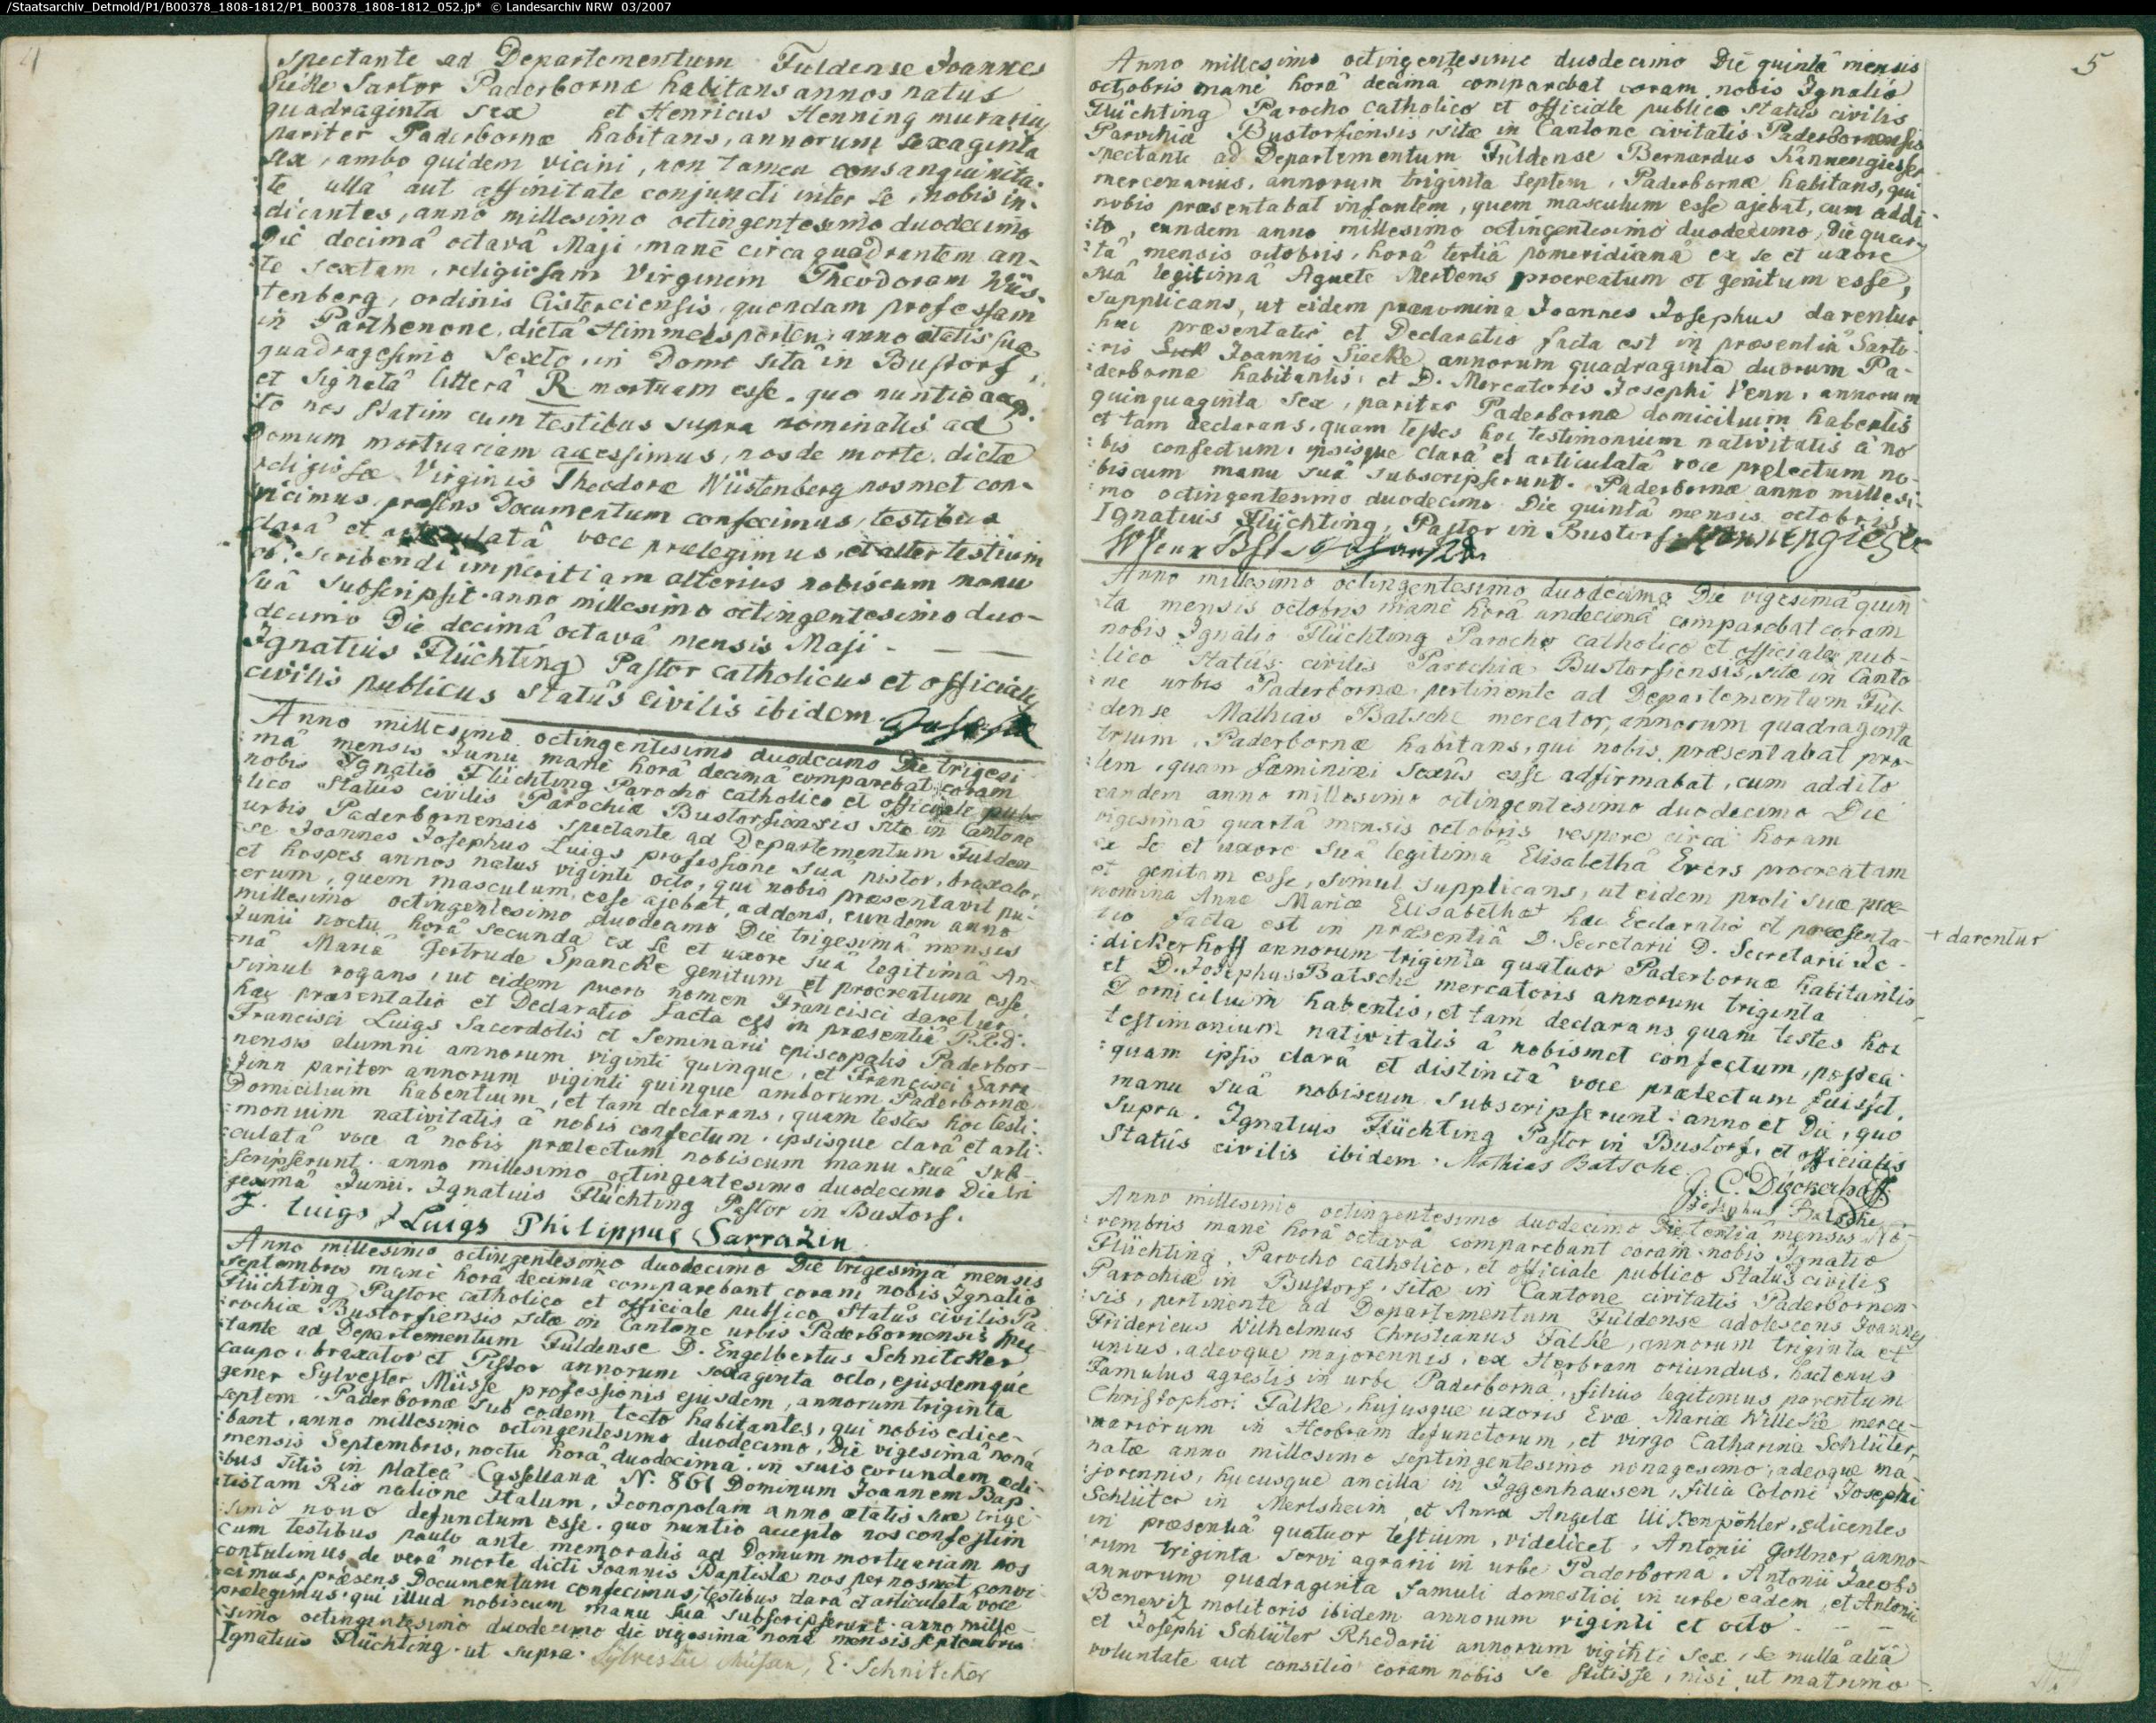 /Staatsarchiv_Detmold/P1/B00378_1808-1812/P1_B00378_1808-1812_052.jp* © Landesarchiv NRW 03/2007
4
spectante ad Departementum Fuldense Joannes
Sieke Sartor Paderbornæ habitans annos natus
quadraginta sex et Henricus Henning murarius
pariter Paderbornæ habitans, annorum sexaginta
sex, ambo quidem vicini, non tamen consanguinita-
te ullâ aut affinitate conjuncti inter se, nobis in-
dicantes, anno millesimo octingentesimo duodecimo
Die decimâ octavâ Maji, manè circa quadrantem an-
te sextam, religiosam Virginem Theodoram Wüs-
tenberg, ordinis Cisterciensis, quondam professam
in Parthenone, dictâ Himmelsporten, anno ætatis suæ
quadragesimo sexto, in Domo sitâ in Bustorf,
et signatâ litterâ R mortuam esse. quo nuntio acep-
to nos statim cum testibus supra nominatis ad
Domum mortuariam accessimus, nos de morte dictæ
religiosæ Virginis Theodoræ Wüstenberg nosmet con-
vicimus, præsens Documentum confecimus, testibus
clarâ et articulatâ voce prælegimus, et alter testium
ob scribendi imperitiam alterius nobiscum manu
suâ subscripsit. anno millesimo octingentesimo duo-
decimo Die decimâ octavâ mensis Maji - — —
Ignatius Flüchting Pastor catholicus et officialis
civilis publicus statûs civilis ibidem.
Anno millesimo octingentesimo duodecimo Die trigesi-
mâ mensis Junii manè horâ decimâ comparebat coram
nobis Ignatio Flüchting Parocho catholico et officiale pub-
lico Statûs civilis Parochiæ Bustorfiensis sitæ in Cantone
urbis Paderbornensis spectante ad Departementum Fulden-
se Joannes Josephus Luigs professione sua pistor, braxator,
et hospes annos natus viginti octo, qui nobis præsentavit pu-
erum, quem masculum esse ajebat, addens, eundem anno
millesimo octingentesimo duodecimo Die trigesimâ mensis
Junii noctu horâ secunda ex se et uxore suâ legitimâ An-
nâ Mariâ Gertrude Spancke genitum et procreatum esse,
simul rogans, ut eidem puero nomen Francisci daretur.
hæc præsentatio et Declaratio facta est in præsentiâ P.R.D.
Francisci Luigs Sacerdotis et Seminarii episcopalis Paderbor-
nensis alumni annorum viginti quinque, et Francisci Sarra
zinn pariter annorum viginti quinque amborum Paderbornæ
Domicilium habentium, et tam declarans, quam testes hoc testi-
monium nativitatis â nobis confectum, ipsisque clarâ et arti-
culatâ voce â nobis prælectum nobiscum manu suâ sub-
scripserunt. anno millesimo octingentesimo duodecimo Die tri
gesimâ Junii. Ignatius Flüchting Pastor in Bustorf.
J. Luigs F Luigs Philippus Sarrazin
Anno millesimo octingentesimo duodecimo Die trigesimâ mensis
Septembris manè horâ decimâ comparebant coram nobis Ignatio
Flüchting Pastore catholico et officiale publico Statûs civilis Pa-
rochiæ Bustorfiensis sitæ in Cantone urbis Paderbornensis spec-
tante ad Departementum Fuldense D. Engelbertus Schnitcker
caupo, braxator et Pistor annorum sexaginta octo, ejusdemque
gener Sylvester Müsse professionis ejusdem, annorum triginta
septem. Paderbornæ sub eodem tecto habitantes, qui nobis edice-
bant, anno millesimo octingentesimo duodecimo, Die vigesimâ nonâ
mensis Septembris, noctu horâ duodecima in suis eorundem ædi-
bus sitis in plateâ Cassellanâ N: 861 Dominum Joannem Bap-
tistam Rio natione Italum, Iconopolam anno ætatis suæ trige-
simo nono defunctum esse. quo nuntio accepto nos confestim
cum testibus paulo ante memoratis ad Domum mortuariam nos
contulimus, de verâ morte dicti Joannis Baptistæ nos per nosmet convi-
cimus, præsens Documentum confecimus, testibus clarâ et articulata voce
prælegimus, qui illud nobiscum manu suâ subscripserunt. anno mille-
simo octingentesimo duodecimo die vigesimâ nonâ mensis septembris
Ignatius Flüchting. ut supra. Sylvester Müsse, E. Schnitcker
5
Anno millesimo octingentesimo duodecimo Die quintâ mensis
octobris manè horâ decimâ comparebat coram nobis Ignatio
Flüchting Parocho catholico et officiale publico statûs civilis
Parochiæ Bustorfiensis sitæ in Cantone civitatis Paderbornensis
spectante ad Departementum Fuldense Bernardus Kannengiesser
mercenarius, annorum triginta septem, Paderbornæ habitans, qui
nobis præsentabat infantem, quem masculum esse ajebat, cum addi-
to, eundem anno millesimo octingentesimo duodecimo, Die quar-
tâ mensis octobris, horâ tertiâ pomeridianâ ex se et uxore
suâ legitimâ Agnete Mertens procreatum et genitum esse,
supplicans, ut eidem prænomina Joannes Josephus darentur.
hæc præsentatio et Declaratio facta est in præsentiâ Sarto-
ris Joannis Siecke annorum quadraginta duorum Pa-
derbornæ habitantis, et D. Mercatoris Josephi Venn, annorum
quinquaginta sex, pariter Paderbornæ domicilium habentis
et tam declarans, quam testes hoc testimonium nativitatis â no
bis confectum, ipsisque clarâ et articulatâ voce prælectum no-
biscum manu suâ subscripserunt. Paderbornæ anno millesi-
mo octingentesimo duodecimo Die quintâ mensis octobris.
Ignatius Flüchting, Pastor in Bustorf. Kannengieser
Anno millesimo octingentesimo duodecimo Die vigesimâ quin
ta mensis octobris manè horâ undecimâ comparebat coram
nobis Ignatio Flüchting Parocho catholico et officiale pub-
lico Statûs civilis Parochiæ Bustorfiensis, sitæ in Canto
ne urbis Paderbornæ, pertinente ad Departementum Ful-
dense Mathias Batsche mercator, annorum quadraginta
trium, Paderbornæ habitans, qui nobis præsentabat pro-
lem, quam fæminini sexûs esse adfirmabat, cum addito
eandem anno millesimo octingentesimo duodecimo Die
vigesimâ quartâ mensis octobris vespere circa horam
ex se et uxore suâ legitimâ Elisabethâ Evers procreatam
et genitam esse, simul supplicans, ut eidem proli suæ præ-
nomina Annæ Mariæ Elisabethæ + hæc Declaratio et præsenta-
tio facta est in præsentiâ D. Secretarii D. Secretarii De-
dickerhoff annorum triginta quatuor Paderbornæ habitantis
et D. Josephus Batsche mercatoris annorum triginta
Domicilium habentis, et tam declarans quam testes hoc
testimonium nativitatis â nobismet confectum, postea
quam ipsis clarâ et distinctâ voce prælectum fuisset,
manu suâ nobiscum subscripserunt. anno et Die, quo
supra. Ignatius Flüchting Pastor in Bustorf, et officialis
Statûs civilis ibidem. Mathias Batsche
J. C. Dickerhoff
Josephus Batsche
+ darentur
Anno millesimo octingentesimo duodecimo Die tertiâ mensis No-
vembris manè horâ octavâ comparebant coram nobis Ignatio
Flüchting, Parocho catholico, et officiale publico Statûs civilis
Parochiæ in Bustorf, sitæ in Cantone civitatis Paderbornen-
sis, pertinente ad Departementum Fuldense adolescens Joannes
Fridericus Wilhelmus Christianus Falke, annorum triginta et
unius, adeoque majorennis, ex Herbram oriundus, hactenus
Famulus agrestis in urbe Paderbornâ, filius legitimus parentum
Christophori Falke, hujusque uxoris Evæ Mariæ Willeke merce-
nariorum in Herbram defunctorum, et virgo Catharina Schlüter,
natæ anno millesimo septingentesimo nonagesimo, adeoque ma-
jorennis, hucusque ancilla in Iggenhausen, filia Coloni Josephi
Schlüter in Merlsheim et Annæ Angelæ Uikenpöhler, edicentes
in præsentiâ quatuor testium, videlicet, Antonii Gollner anno-
rum triginta servi agrarii in urbe Paderbornâ. Antonii Jacobs
annorum quadraginta famuli domestici in urbe eâdem, et Antonii
Benewitz molitoris ibidem annorum viginti et octo - — —
et Josephi Schlüter Rhedarii annorum viginti sex, se nullâ aliâ
voluntate aut consilio coram nobis se stitisse, nisi ut matrimo-